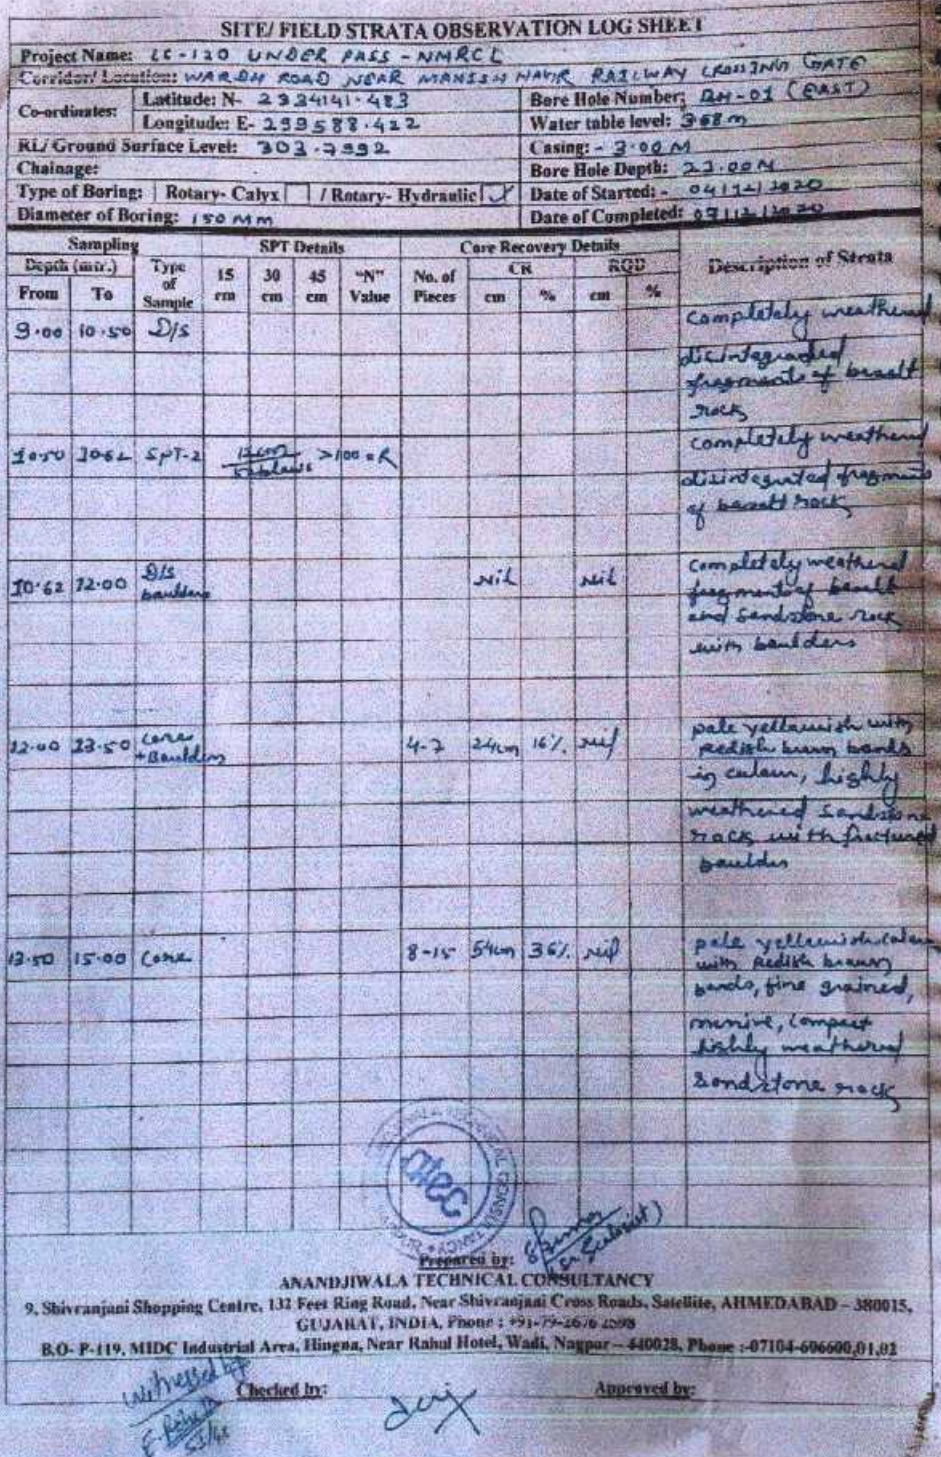 SITE/ FIELD STRATA OBSERVATION LOG SHEET
Project Name: LC-120 UNDER PASS - NMRCL
Corridor/ Location: WARDH ROAD NEAR MANISH NAGR RAILWAY CROSSING GATE
Co-ordinates: Latitude: N- 2334141.483 Bore Hole Number: BH-01 (EAST)
Longitude: E- 299588.422 Water table level:
RL/ Ground Surface Level: 303.7992 Casing: - 3.00 M
Chainage: Bore Hole Depth: 23.00M
Type of Boring: Rotary- Calyx / Rotary- Hydraulic ✓ Date of Started: - 04/12/2020
Diameter of Boring: 150 MM Date of Completed: 07/12/2020
Sampling SPT Details Core Recovery Details Description of Strata
Depth (mtr.) Type of Sample 15 cm 30 cm 45 cm "N" Value No. of Pieces CR RQD
From To cm % cm %
9.00 10.50 D/S completely weathered
disintegraded
fragments of basalt
rock
10.50 10.62 SPT-2 >100 R completely weathered
disintegrated fragments
of basalt rock
10.62 12.00 D/S baulders Nil Nil completely weathered
fragments of basalt
and sandstone rock
with baulders
12.00 13.50 core + Baulders 4-7 24cm 16% Nil pale yellawish with
Redish brawn bands
in calaur, highly
weathered sandstone
rock with fractured
baulder
13.50 15.00 Core 8-15 54cm 36% Nil pale yellawish calaur
with Redish brawn
bands, fine grained,
massive, compact
highly weathered
Sandstone rock
atec
Prepared by:
ANANDJIWALA TECHNICAL CONSULTANCY
9, Shivranjani Shopping Centre, 132 Feet Ring Road, Near Shivranjani Cross Roads, Satellite, AHMEDABAD – 380015,
GUJARAT, INDIA, Phone : +91-79-2676 2098
B.O- P-119, MIDC Industrial Area, Hingna, Near Rahul Hotel, Wadi, Nagpur – 440028, Phone :-07104-606600,01,02
witnessed by
Checked by: Approved by: